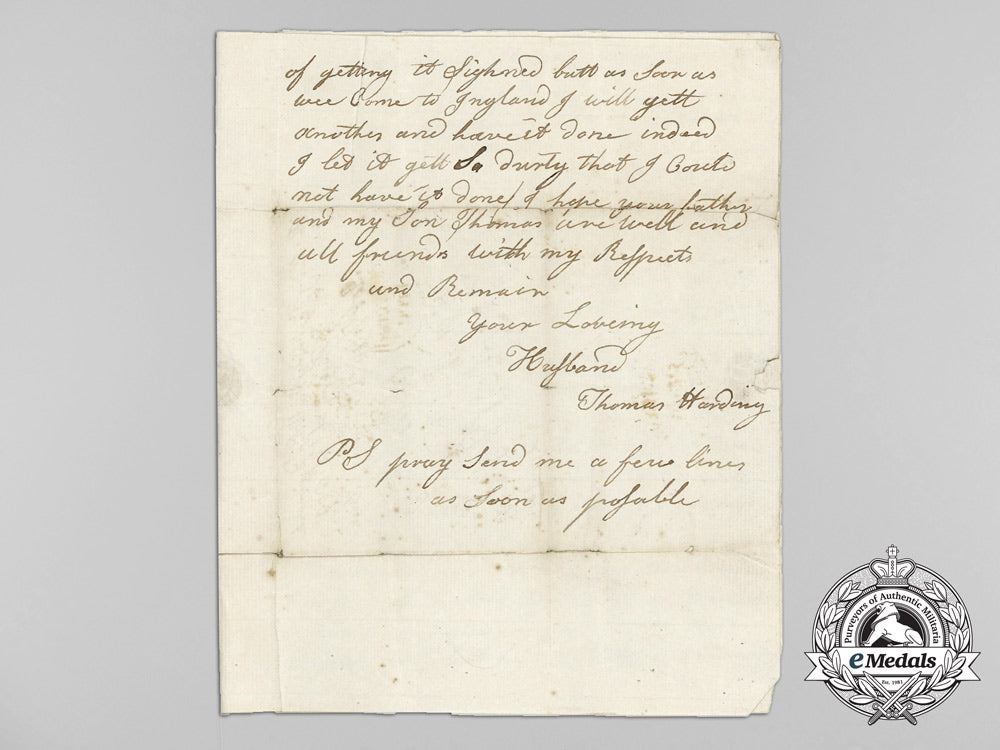 of getting it Sighned butt as Soon as
wee Come to Ingland I will gett
another and have it done indeed
I let it gett So durty that I Could
not have it done / I hope your father
and my Son Thomas are well and
all friends with my Respects
and Remain
Your Loveing
Husband
Thomas Harding
PS pray Send me a few lines
as Soon as posable
Purveyors of Authentic Militaria
eMedals
Est. 1981